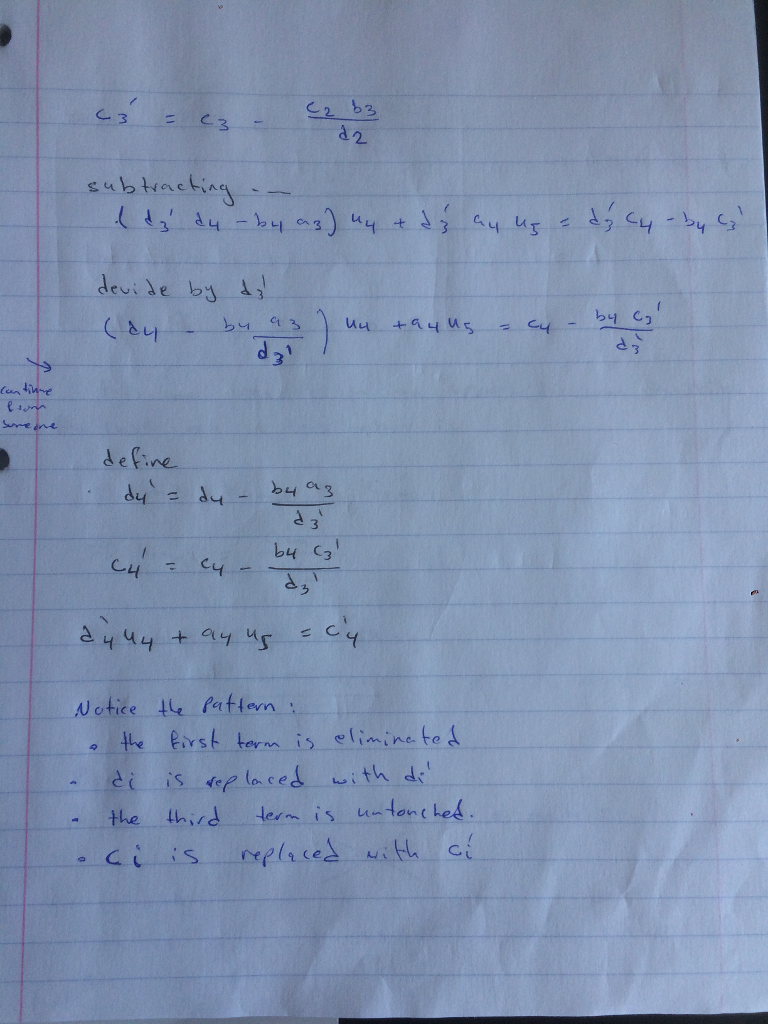 c3' = c3 - c2 b3 / d2
subtracting ---
( d3' d4 - b4 a3 ) u4 + d3' a4 u5 = d3' c4 - b4 c3'
devide by d3'
( d4 - b4 a3 / d3' ) u4 + a4 u5 = c4 - b4 c3' / d3'
→
continue
from
someone
define
d4' = d4 - b4 a3 / d3'
c4' = c4 - b4 c3' / d3'
d'4 u4 + a4 u5 = c'4
Notice the pattern :
• the first term is eliminated
- di is replaced with di'
- the third term is untouched.
• ci is replaced with ci'